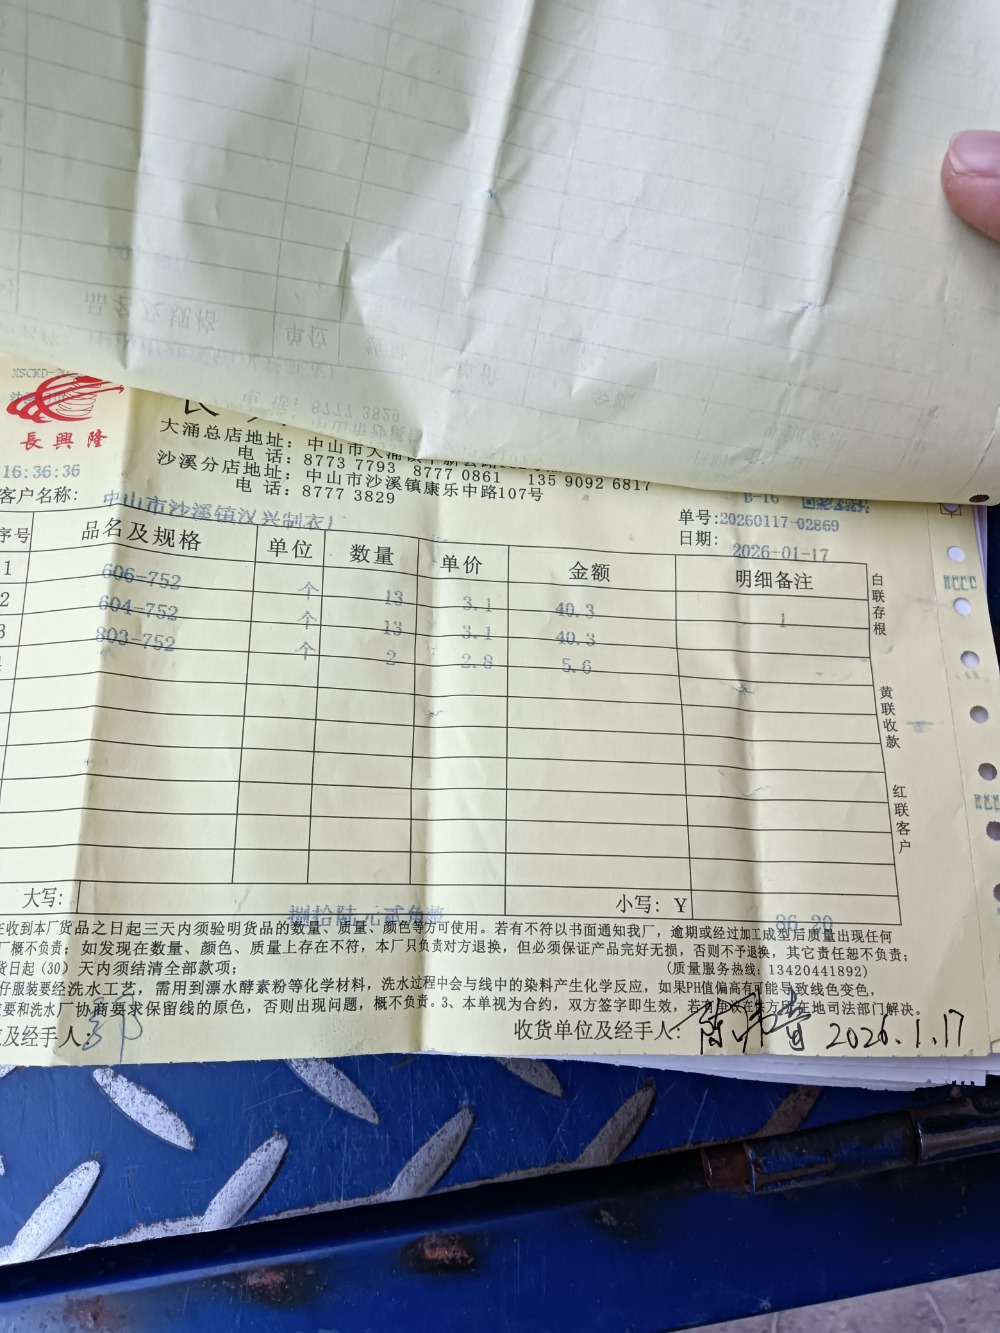 長興隆
大涌总店地址：中山市大涌镇
电 话：8773 7793 8777 0861 135 9092 6817
沙溪分店地址：中山市沙溪镇康乐中路107号
电 话：8777 3829
16:36:36
客户名称： 中山市沙溪镇汉兴制衣厂
B-16
单号:20260117-02869
日期： 2026-01-17
序号 品名及规格 单位 数量 单价 金额 明细备注
1 606-752 个 13 3.1 40.3 1
2 604-752 个 13 3.1 40.3
3 803-752 个 2 2.8 5.6
白联存根
黄联收款
红联客户
大写： 捌拾陆元贰角整 小写：Y 86.20
在收到本厂货品之日起三天内须验明货品的数量、质量、颜色等方可使用。若有不符以书面通知我厂，逾期或经过加工成型后质量出现任何
厂概不负责；如发现在数量、颜色、质量上存在不符，本厂只负责对方退换，但必须保证产品完好无损，否则不予退换，其它责任恕不负责；
货日起(30)天内须结清全部款项； (质量服务热线：13420441892)
仔服装要经洗水工艺，需用到漂水酵素粉等化学材料，洗水过程中会与线中的染料产生化学反应，如果PH值偏高有可能导致线色变色，
要和洗水厂协商要求保留线的原色，否则出现问题，概不负责。3、本单视为合约，双方签字即生效，若有争议在供方所在地司法部门解决。
及经手人： 郭 收货单位及经手人： 2026.1.17